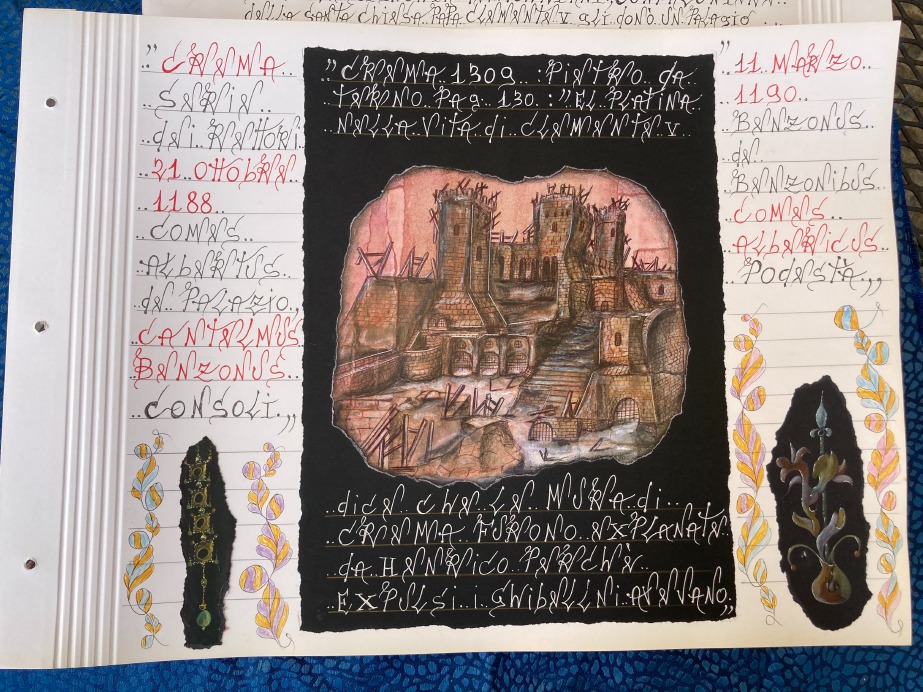 della santa chiesa. papa clemente v gli dono. un palagio ...
" CREMA..
SERIE..
dei RETTORI
21 OTTOBRE
..1188..
COMES..
ALBERTUS
de PALAZIO..
CANTELMUS
BENZONUS..
..CONSOLI.,,
"CREMA 1309..: PIETRO da
TERNO. PAG. 130.: "EL PLATINA
NELLA VITA di CLEMENTE V..
..dice che le MURA di..
..CREMA FURONO EXPLANATE
..da HENRICO PERCHÈ..
..EXPULSI i GHIBELLINI AVEVANO.,,
" 11 MARZO..
1190..
BENZONUS..
de..
BENZONIBUS
COMES..
ALBERICUS..
PODESTÀ.,,